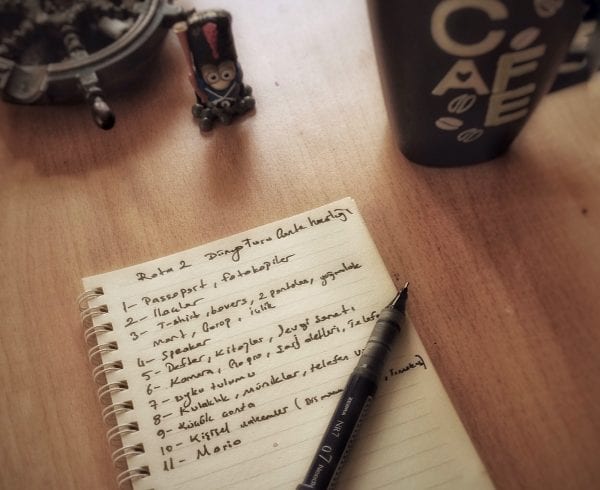 CAFE
Rota 2 Dünya Turu Çanta hazırlığı
1- Passaport, fotokopiler
2- İlaçlar
3- T-shirt, boxers, 2 pantolon, yağmurluk
mont, çorap, içlik
4- Speaker
5- Defter, Kitaplar, Sevgi Sanatı
6- Kamera, Go pro, şarj aletleri,
7- Uyku tulumu
8- Kulaklık, müzikler, telefon
9- Küçük çanta
10- Kişisel malzemeler (
11- Mario
NR7 07